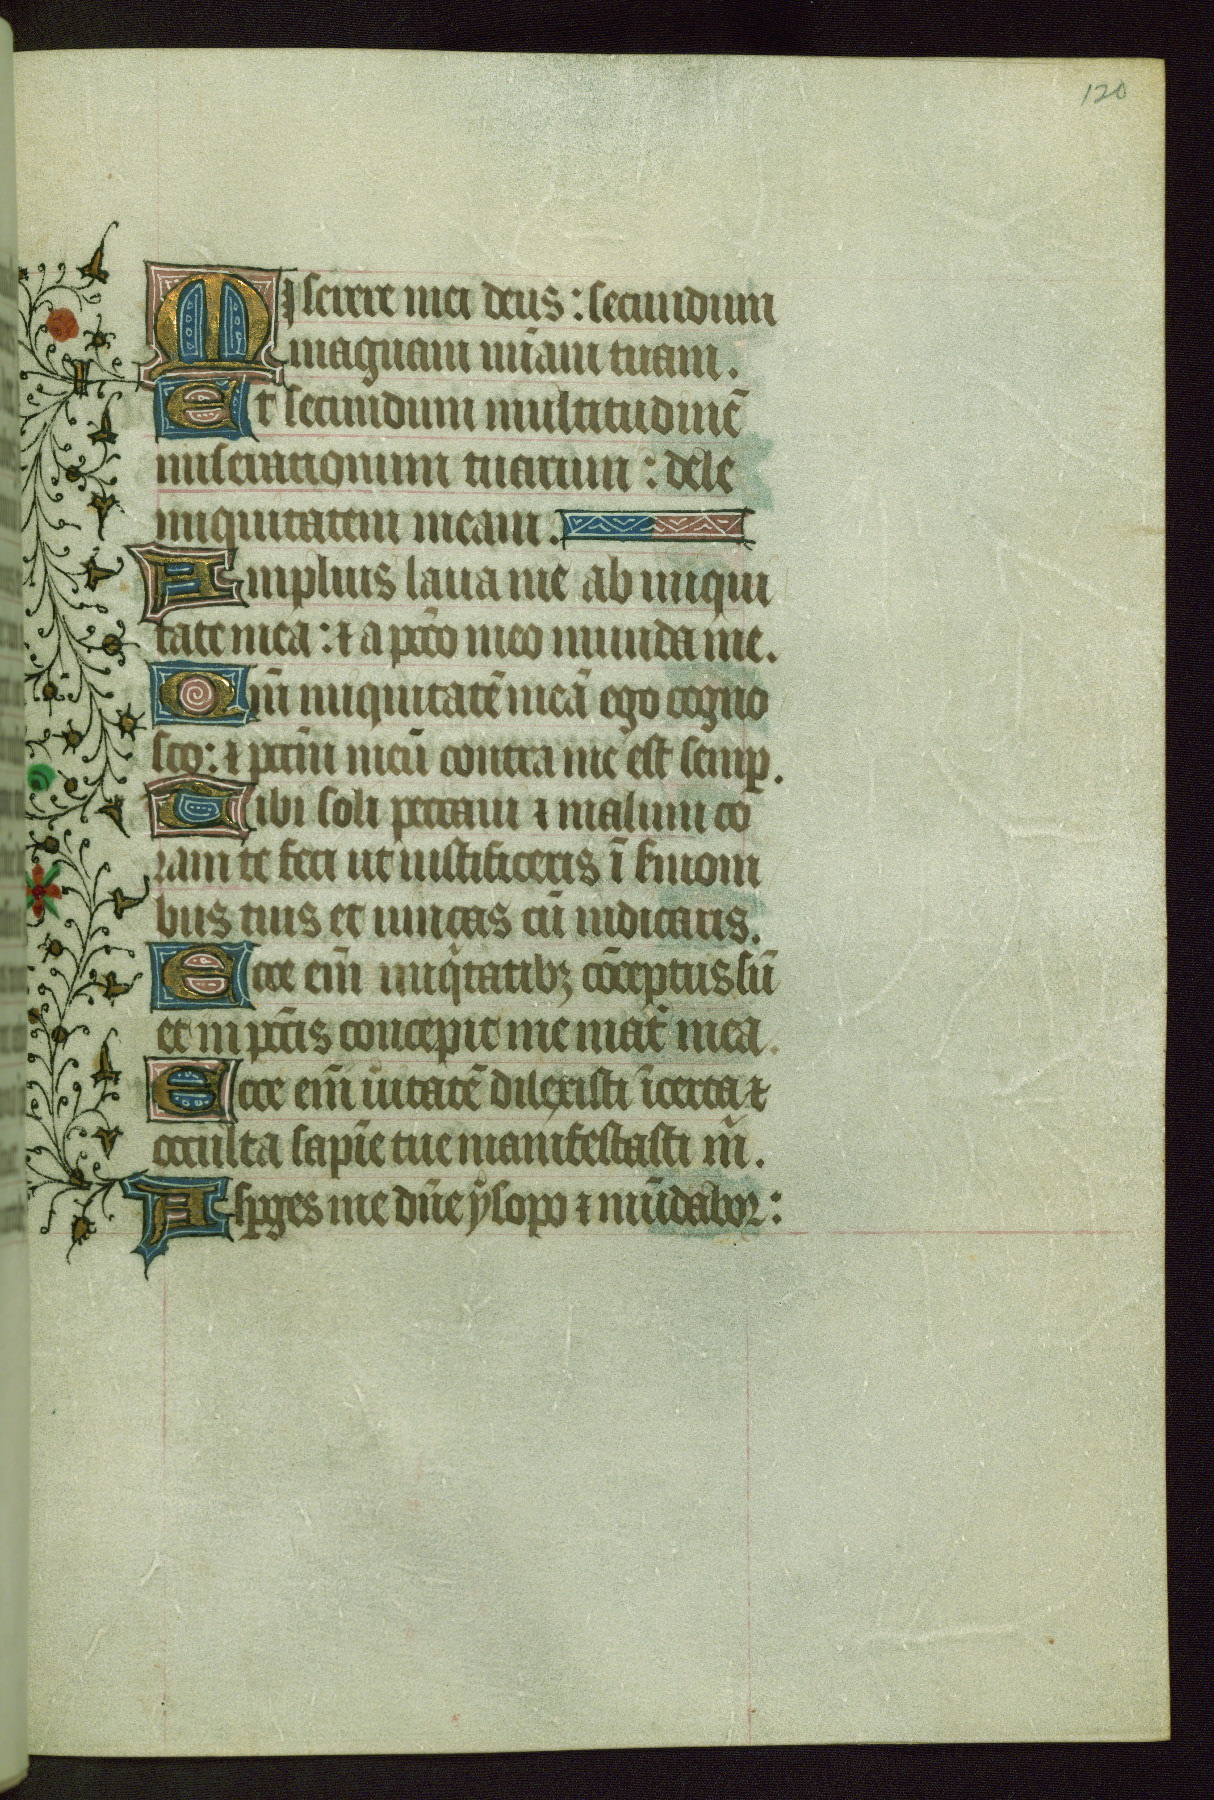 120
Miserere mei deus: secundum
magnam mi̅am tuam.
Et secundum multitudine̅
miserationum tuarum: dele
iniquitatem meam.
Amplius laua me ab iniqui
tate mea: ⁊ a pcc̅o meo munda me.
Qm̅ iniquitate̅ mea̅ ego cogno
sco: ⁊ pccm̅ meu̅ contra me est semꝑ.
Tibi soli peccaui ⁊ malum co
ram te feci ut iustificeris i̅ s̅moni
bus tuis et uincas cu̅ iudicaris.
Ecce em̅ iniq̅tatibꝫ co̅ceptus su̅
et in pcc̅is concepit me mat̅ mea.
Ecce em̅ u̅itate̅ dilexisti i̅certa ⁊
occulta sapi̅e tue manifestasti m̅.
Asꝑges me dn̅e ysopo ⁊ mu̅dabor: